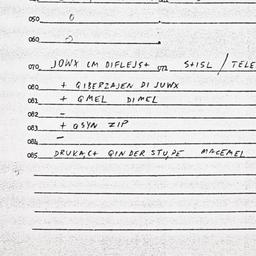 050
060
070 JOWX CM DIFLEJS+ 072 S+ISL / TELE
080 + GIBERZAJEN DI JUWX
081 + GMEL DIMEL
082 -
083 + QSYN ZIP
084 -
085 DRUKAC+ QINDER STUDE MACEMEL